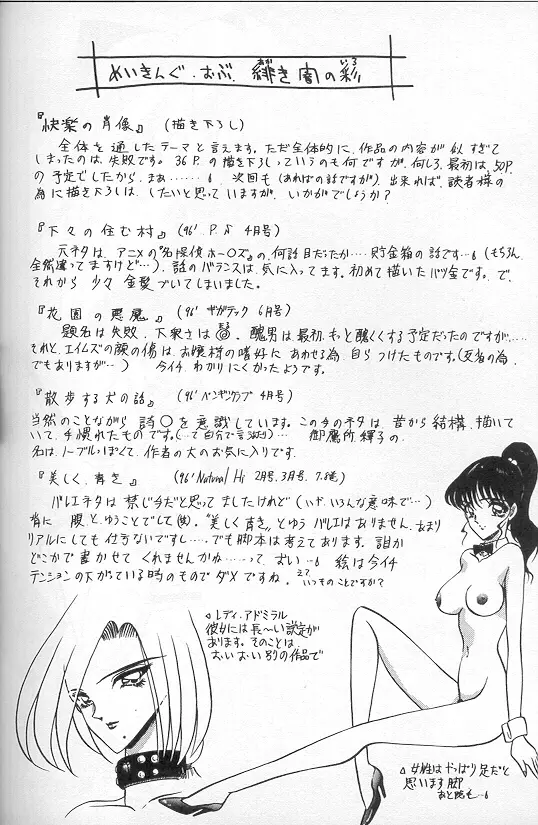 めいきんぐ・おぶ 緋き闇の彩
いろ
『快楽の肖像』 (描き下ろし)
全体を通したテーマと言えます。ただ全体的に、作品の内容が似すぎて
しまったのは、失敗です。36P.の描き下ろしっていうのも何ですが、何しろ、最初は、50P.
の予定でしたから、まぁ……6 次回も(あればの話ですが)、出来れば、読者様の
為に描き下ろしは、したいと思っていますが、いかがでしょうか?
『下々の住む村』 (96' 4月号)
元ネタは、アニメの“名探偵ホー〇ズ”の、何話目だったか‥‥貯金箱の話です…6(もちろん、
全然違ってますけど…)、話のバランスは、気に入ってます。初めて描いたパツ金です。で、
それから 少々 金髪づいてしまいました。
『花園の悪魔』 (96' ギガテック 6月号)
題名は失敗、下衆さは 醜男は、最初、もっと醜くくする予定だったのですが……
それと、エイムズの顔の傷は、お嬢様の嗜好に あわせる為、自らつけたものです。(忍者の為、
でもありますが…) 今イチ、わかりにくかったようです。
『散歩する犬の話』 (96' ペンギンクラブ 4月号)
当然のことながら 詩〇を意識しています。この手のネタは、昔から 結構、描いて
いて、手慣れたものです。(…て自分で言うなよ)… 御鷹所 輝子の、
名は、ノーブルっぽくて、作者の大のお気に入りです。
『美しく、青き』 (96' Natural Hi 2月号、3月号、
バレエネタは 禁じ手だと思ってましたけれど(いや、いろんな意味で…)
背に 腹と、ゆうことでして(笑)。“美しく青き”とゆう バレエはありません、あまり
リアルにしても 仕方ないですし…。でも脚本は考えてあります。誰か
どこかで 書かせて くれませんかね……って、おい…6 絵は今イチ
テンションの下がっている時のもので ダメですね。 いつものことですか?
△レディ・アドミラル
彼女には長〜い設定が
あります。そのことは
おいおい 別の作品で
△女性はやっぱり足だと
思います 脚
あと腕も…6